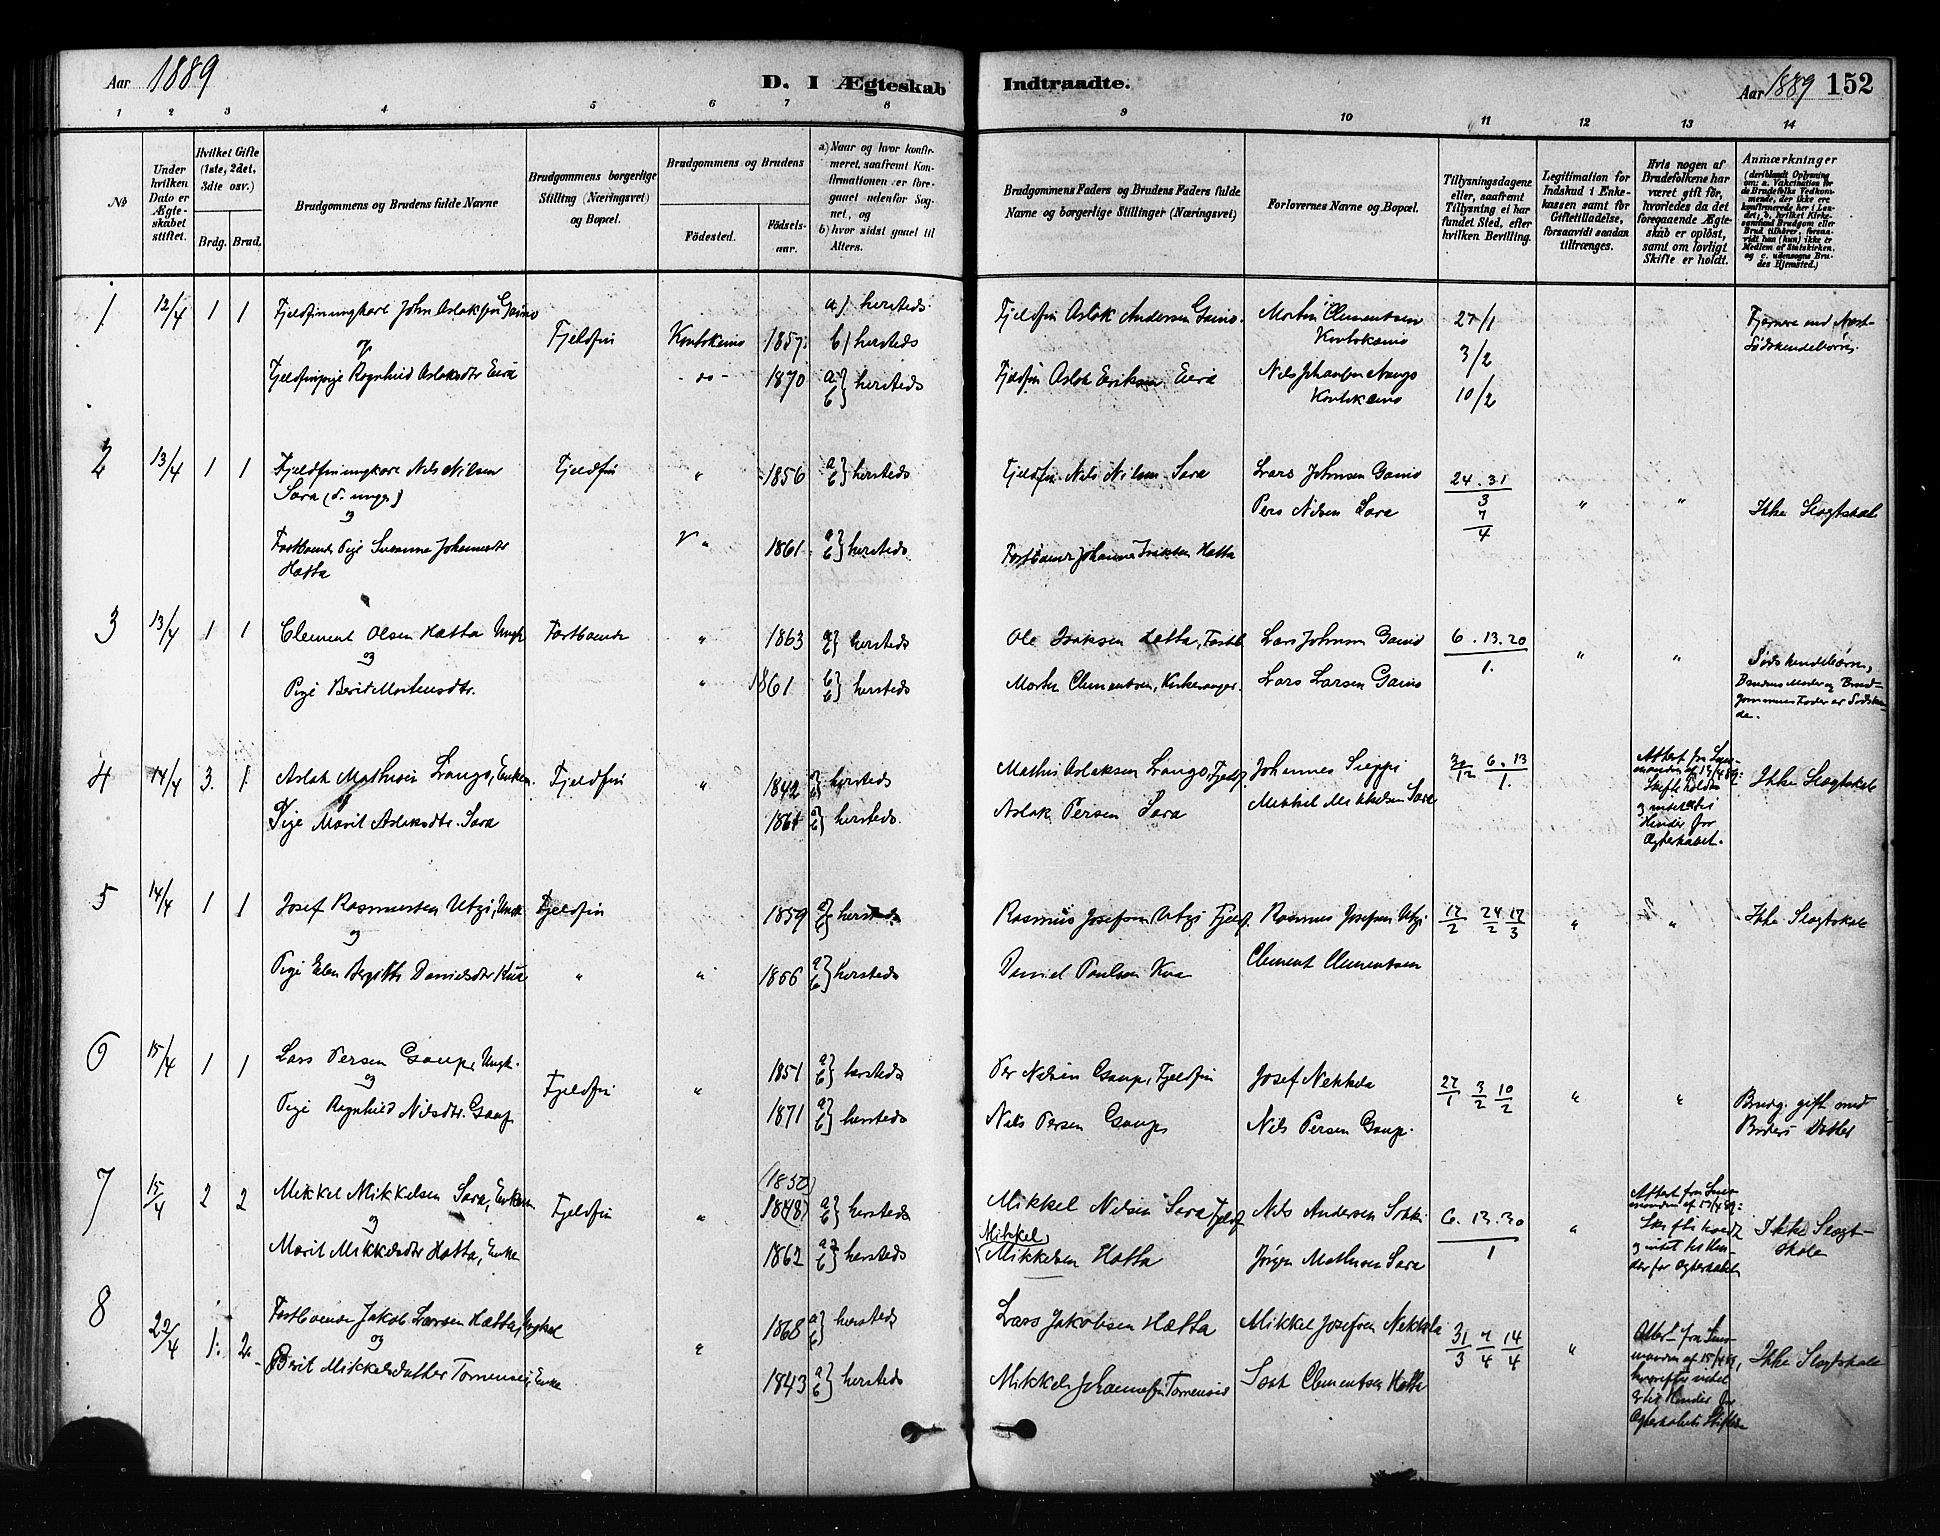 Aar 1889
D. I Ægteskab Indtraadte.
Aar 1889 152
1 2 3 4 5 6 7 8 9 10 11 12 13 14
No
Under hvilken Dato er Ægteskabet stiftet.
Hvilket Gifte (1ste, 2det, 3die osv.)
Brdg. Brud.
Brudgommens og Brudens fulde Navne
Brudgommens borgerlige Stilling (Næringsvei) og Bopæl.
Brudgommens og Brudens
Fødested.
Fødselsaar.
a) Naar og hvor konfirmeret, saafremt Konfirmationen er foregaaet udenfor Sognet, og
b) hvor sidst gaaet til Alters.
Brudgommens Faders og Brudens Faders fulde Navne og borgerlige Stillinger (Næringsvei)
Forlovernes Navne og Bopæl.
Tillysningsdagene eller, saafremt Tillysning ei har fundet Sted, efter hvilken Bevilling.
Legitimation for Indskud i Enkekassen samt for Giftetilladelse, forsaavidt saadan tiltrænges.
Hvis nogen af Brudefolkene har været gift før, hvorledes da det foregaaende Ægteskab er opløst, samt om lovligt Skifte er holdt.
Anmærkninger (deriblandt Oplysning om: a. Vakcination for de Brudefolks Vedkommende, der ikke ere konfirmerede her i Landet; b. hvilket Kirkesamfund Brudgom eller Brud tilhører, forsaavidt han (hun) ikke er Medlem af Statskirken, og c. udensogns Brudes Hjemsted.)
1 12/4 1 1 Fjeldfinungkarl John Aslaksen Gaino
og
Fjeldfin Kautokeino 1857. a) hersteds b) hersteds
Fjeldfinpige Ragnhild Aslaksdtr Eira - do - 1870 a b } hersteds
Fjeldfin Aslak Andersen Gaino. Morten Clementsen Kautokeino 27/1
3/2
Fjeldfin Aslak Eriksen Eira Nils Johansen Kautokeino 10/2
Fjernere end Næst-Södskendebörn.
2 13/4 1 1 Fjeldfinungkarl Nils Nilsen Sara (d. yngr.) Fjeldfin " 1856 a b } hersteds
og
Fastboende Pige Susanna Johannesdtr Hætta " 1861 a b } hersteds
Fjeldfin Nils Nilsen Sara Lars Johnsen Gaino 24. 31
Per Nilsen Sara 3
7
4
Fastboende Johannes Isaksen Hætta
" " Ikke Slægtskab
3 13/4 1 1 Clement Olsen Hætta Ungk Fastboende " 1863 a b } hersteds
og
Pige Berit Mortensdtr. " 1861 a b } hersteds
Ole Isaksen Hætta, Fastb Lars Johnsen Gaino 6. 13. 20
1.
Morten Clementsen, Kirkesanger. Lars Larsen Gaino
" " Södskendebörn, Brudens Moder og Brudgommens Fader er Södskende.
4 14/4 3. 1 Aslak Mathisen Lango, Enkem. Fjeldfin " 1842 a b } hersteds
og
Pige Marit Aslaksdtr. Sara 1861 a b } hersteds.
Mathis Aslaksen Lango, Fjeldf. Johannes Sieppi 30/12 6. 13 1.
Aslak Persen Sara Mikkel Mikkelsen Sara
Attest fra Lensmanden af 13/4 89: Skifte holdt og intet til Hinder for Ægteskabet.
Ikke Slægtskab
5 14/4 1 1 Josef Rasmussen Utzi, Ungk Fjeldfin 1859 a b } hersteds
og
Pige Elen Birgitte Danielsdtr Kua " " 1856 a b } hersteds
Rasmus Josefsen Utzi Fjeldf. Rasmus Josefsen Utzi 17/2 24/2 17/3
Daniel Poulsen Kua Clement Clementsen
" " Ikke Slægtskab
6 15/4 1 1 Lars Persen Gaup, Ungk. 1851 a b } hersteds
og
Fjeldfin "
Pige Ragnhild Nilsdtr. Gaup 1871 a b } hersteds
Per Nilsen Gaup, Fjeldfin Josef Nekkela 27/1 3/2 10/2
Nils Persen Gaup, Nils Persen Gaup.
" " Brudg. gift med Broders Datter
7 15/4 2 2 Mikkel Mikkelsen Sara, Enkem Fjeldfin " (1850) 1848 a b } hersteds
og
Marit Mikkelsdtr Hætta, Enke 1862 a b } hersteds
Mikkel Nilsen Sara Fjeldf Nils Andersen Sokki 6. 13. 30
1
Mikkel
Mikkelsen Hætta Jörgen Mathisen Sara
" Attest fra Lensmanden af 13/4 89: Skifte holdt og intet til Hinder for Ægteskabet
Ikke Slægtskab
8 22/4 1. 2. Fastboende Jakob Larsen Hætta, Ungkarl " 1868 a b } hersteds
og
Berit Mikkelsdatter Tornensis, Enke 1843 a b } hersteds
Lars Jakobsen Hætta Mikkel Josefsen Nekkela 31/3 7/4 14/4
Mikkel Johannesen Tornensis Isak Clementsen Hætta
" Attest fra Lensmanden af 15/4 89, hvorefter intet er til Hinder for Ægteskabets Stiftelse
Ikke Slægtskab